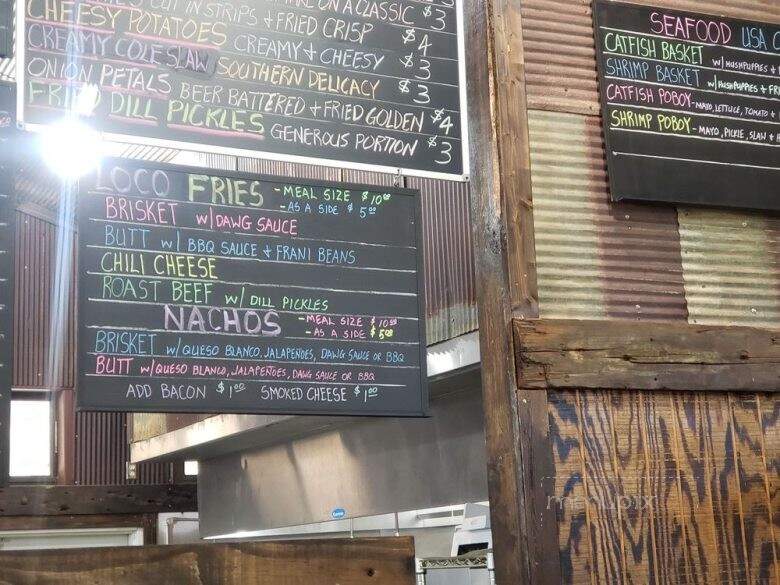 CUT IN STRIPS + FRIED CRISP
ON A CLASSIC $3
CHEESY POTATOES CREAMY + CHEESY $4
CREAMY COLE SLAW SOUTHERN DELICACY $3
ONION PETALS BEER BATTERED + FRIED GOLDEN $4
FRIED DILL PICKLES GENEROUS PORTION $3
LOCO FRIES - MEAL SIZE $10.00
- AS A SIDE $5.00
BRISKET W/ DAWG SAUCE
BUTT W/ BBQ SAUCE + FRANI BEANS
CHILI CHEESE
ROAST BEEF W/ DILL PICKLES
NACHOS - MEAL SIZE $10.00
- AS A SIDE $5.00
BRISKET W/ QUESO BLANCO, JALAPEÑOES, DAWG SAUCE OR BBQ
BUTT W/ QUESO BLANCO, JALAPEÑOES, DAWG SAUCE OR BBQ
ADD BACON $1.00 SMOKED CHEESE $1.00
SEAFOOD USA
CATFISH BASKET W/ HUSHPUPPIES +
SHRIMP BASKET W/ HUSHPUPPIES + FRI
CATFISH POBOY - MAYO, LETTUCE, TOMATO +
SHRIMP POBOY - MAYO, PICKLE, SLAW +
menupix